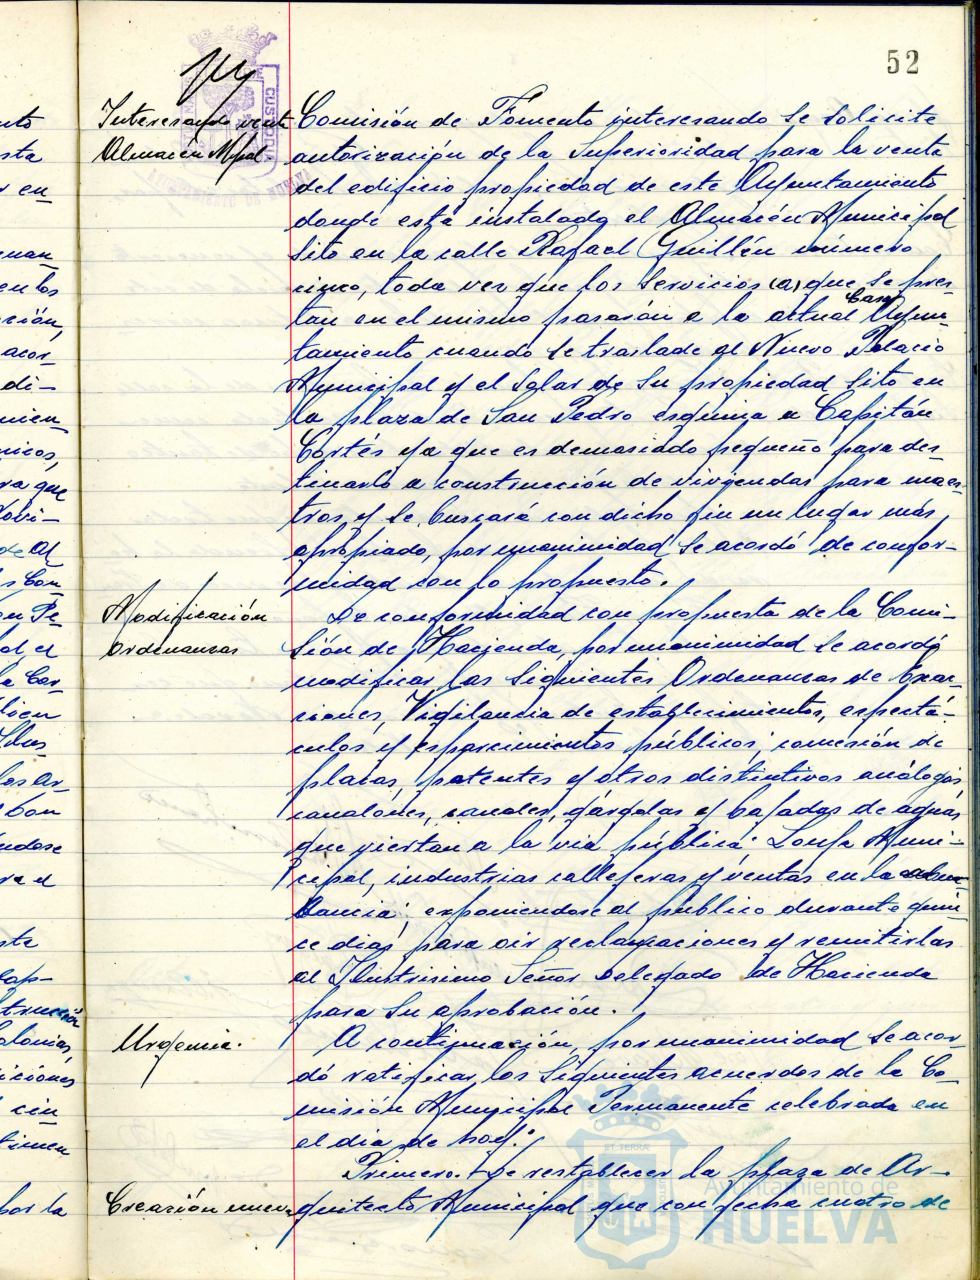 52
Interesando venta
Almacén Mpal
Comisión de Fomento interesando se solicite
autorización de la Superioridad para la venta
del edificio propiedad de este Ayuntamiento
donde está instalado el Almacén Municipal
sito en la calle Rafael Guillén número
cinco, toda vez que los servicios (a) que se pres-
tan en el mismo pasarán a la actual Casa Ayun-
tamiento cuando se traslade al Nuevo Palacio
Municipal y el solar de su propiedad sito en
la plaza de San Pedro esquina a Capitán
Cortés ya que es demasiado pequeño para des-
tinarlo a construcción de viviendas para maes-
tros y se buscará con dicho fin un lugar más
apropiado, por unanimidad se acordó de confor-
midad con lo propuesto.
Modificación
Ordenanzas
De conformidad con propuesta de la Comi-
sión de Hacienda, por unanimidad se acordó
modificar las siguientes Ordenanzas de Exac-
ciones, Vigilancia de establecimientos, espectá-
culos y esparcimientos públicos; concesión de
placas, patentes y otros distintivos análogos,
canalones, canales, gárgolas y bajadas de aguas
que viertan a la vía pública: Lonja Muni-
cipal, industrias callejeras y ventas en la ambu-
lancia; exponiendose al público durante quin
ce días para oir reclamaciones y remitirlas
al Ilustrísimo Señor Delegado de Hacienda
para su aprobación.
Urgencia.
A continuación, por unanimidad se acor-
dó ratificar los siguientes acuerdos de la Co-
misión Municipal Permanente celebrada en
el día de hoy:
Primero. De restablecer la plaza de Ar-
Creación nueva
quitecto Municipal que con fecha cuatro de
Ayuntamiento de
HUELVA